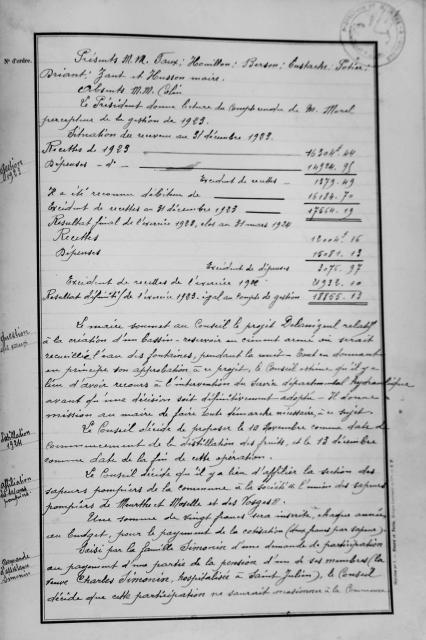 N° d'ordre.
Présents M.M. Faux; Houillon; Berson; Eustache; Potier;
Briant; Zant et Husson maire.
Absents M.M. Colin
Le Président donne lecture du compte rendu de M. Morel
percepteur de la gestion de 1923.
Situation des revenus au 31 décembre 1923.
Recettes de 1923 16204f.44
Dépenses - d° - 14924.95
Excédent de recettes 1279.49
Il a été reconnu débiteur de 16184.70
Excédent de recettes au 31 décembre 1923 17464.19
Résultat final de l'exercice 1923, clos au 31 mars 1924
Recettes 12004f.16
Dépenses 15081.13
Excédent de dépenses 3076.97
Excédent de recettes de l'exercice 1922 21932.10
Résultat définitif de l'exercice 1923 égal au compte de gestion 18855.13
Gestion
1923
Le maire soumet au Conseil le projet relatif
à la création d'un bassin-réservoir en ciment armé où serait
recueillie l'eau des fontaines, pendant la nuit. Tout en donnant
en principe son approbation à ce projet, le Conseil estime qu'il y a
lieu d'avoir recours à l'intervention du Service départemental hydraulique
avant qu'une décision soit définitivement adoptée. Il donne
mission au maire de faire toute démarche nécessaire, à ce sujet.
Distillation
1924
Le Conseil décide de proposer le 10 Novembre comme date de
commencement de la distillation des fruits, et le 13 décembre
comme date de la fin de cette opération.
Affiliation
des sapeurs
pompiers
Le Conseil décide qu'il y a lieu d'affilier la section des
sapeurs pompiers de la commune à la société de l'union des sapeurs
pompiers de Meurthe et Moselle et des Vosges.
Une somme de vingt francs sera inscrite, chaque année,
au budget, pour le payement de la cotisation
Demande
Simonin
Saisi par la famille Simonin d'une demande de participation
au payement d'une partie de la pension d'un de ses membres (la
veuve Charles Simonin, hospitalisée à Saint Julien), le Conseil
décide que cette participation ne saurait incomber à la Commune